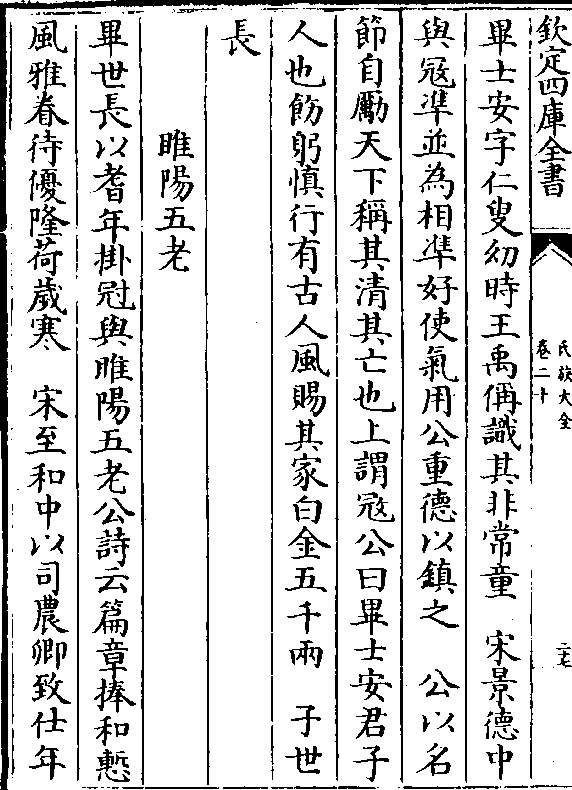 欽定四庫全書
氏族大全
卷二十
二七
畢士安字仁叟幼時王禹偁識其非常童　宋景德中
與寇準並為相準好使氣用公重德以鎮之　公以名
節自勵天下稱其清其亡也上謂寇公曰畢士安君子
人也飭躬慎行有古人風賜其家白金五千兩　子世
長
睢陽五老
畢世長以耆年掛冠與睢陽五老公詩云篇章捧和慙
風雅眷待優隆荷歲寒　宋至和中以司農卿致仕年